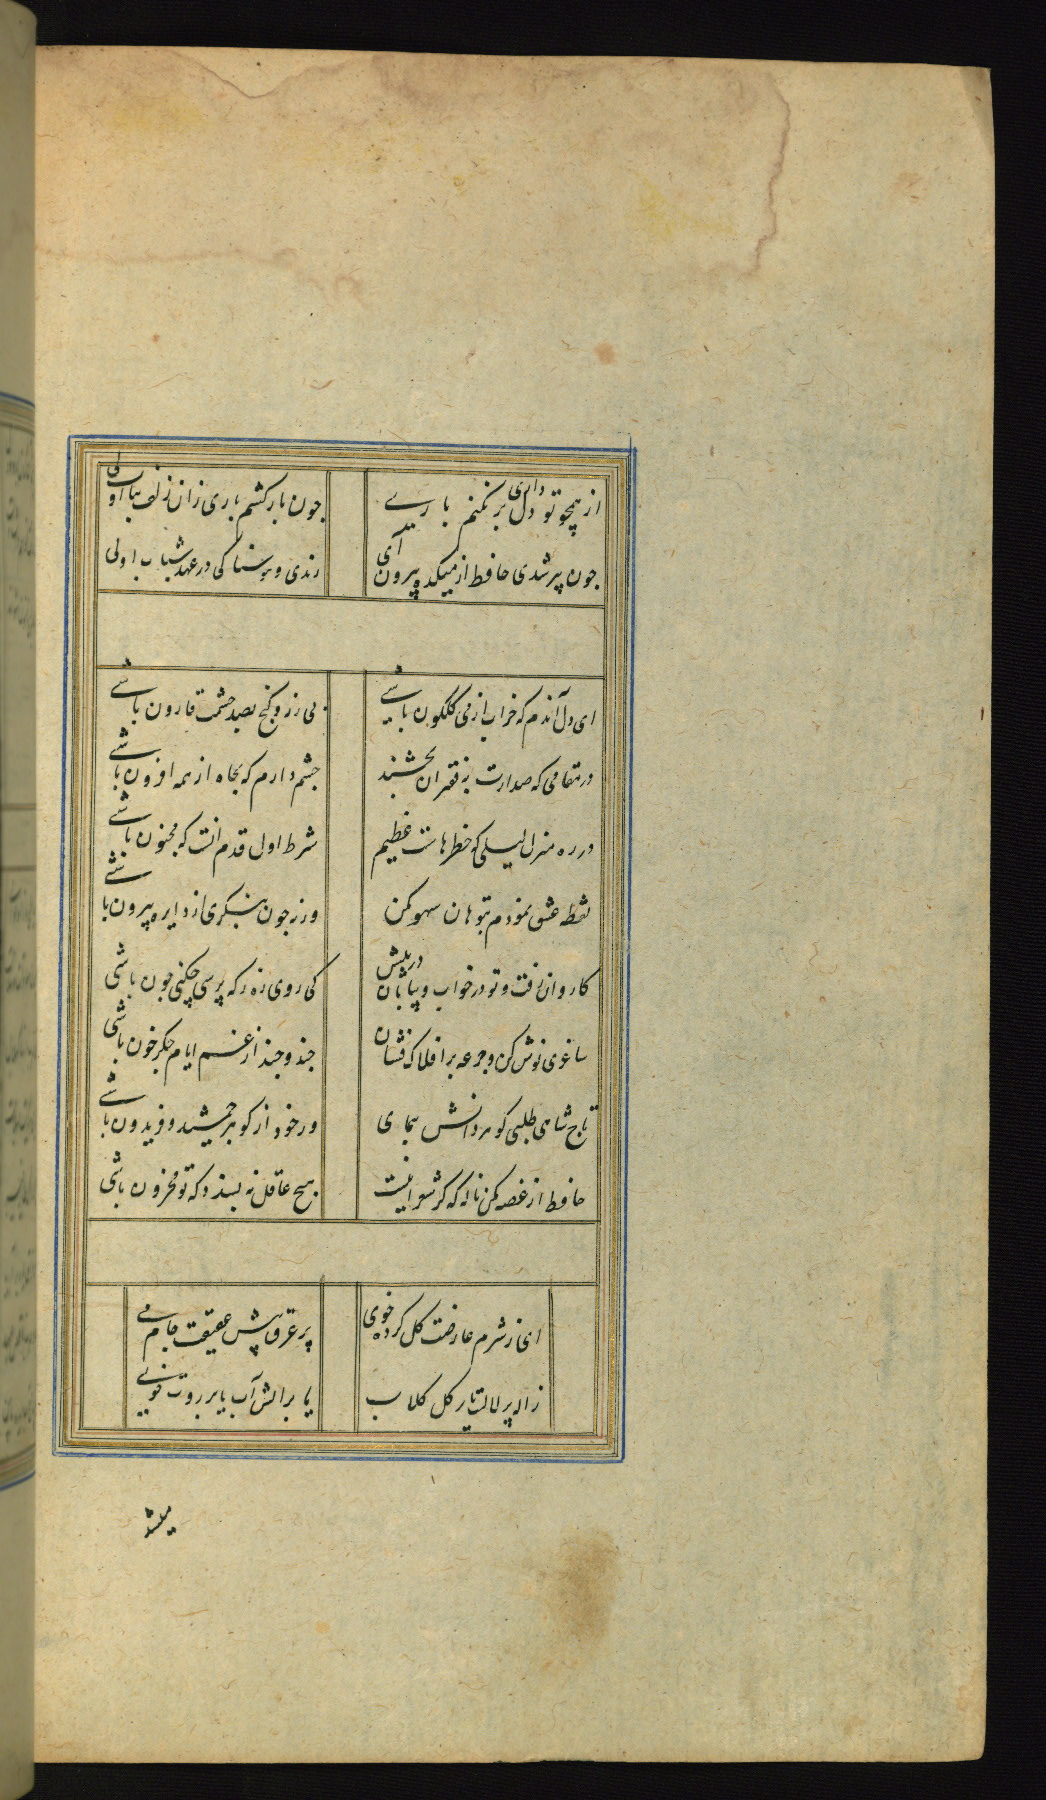 از همچو تو دلداری دل بر نکنم باری
جون بار کشم باری زان زلف بتاب اولی
جون پیر شدی حافظ از میکده بیرون آی
رندی و هوسناکی در عهد شباب اولی
ای دل آندم که خراب از می گلگون باشی
بی زر و گنج بصد حشمت قارون باشی
در مقامی که صدارت بفقیران بخشند
جشم دارم که بجاه از همه افزون باشی
در ره منزل لیلی که خطرهاست عظیم
شرط اول قدم انست که مجنون باشی
نقطه عشق نمودم بتو هان سهو مکن
ورنه جون بنگری از دایره بیرون باشی
کاروان رفت و تو در خواب و بیابان در پیش
کی روی ره ز که پرسی چکنی جون باشی
ساغری نوش کن و جرعه بر افلاک فشان
جند و جند از غم ایام جگر خون باشی
تاج شاهی طلبی گوهر دانش بنمای
ور خود از گوهر جمشید و فریدون باشی
حافظ از غصه مکن ناله که گر شعر اینست
هیچ عاقل نه پسندد که تو محزون باشی
ای ز شرم عارضت گل کرده خوی
پر عرق پیش عقیقت جام می
ژاله بر لاله است یا بر گل گلاب
یا بر اتش آب یا بر روت خوی